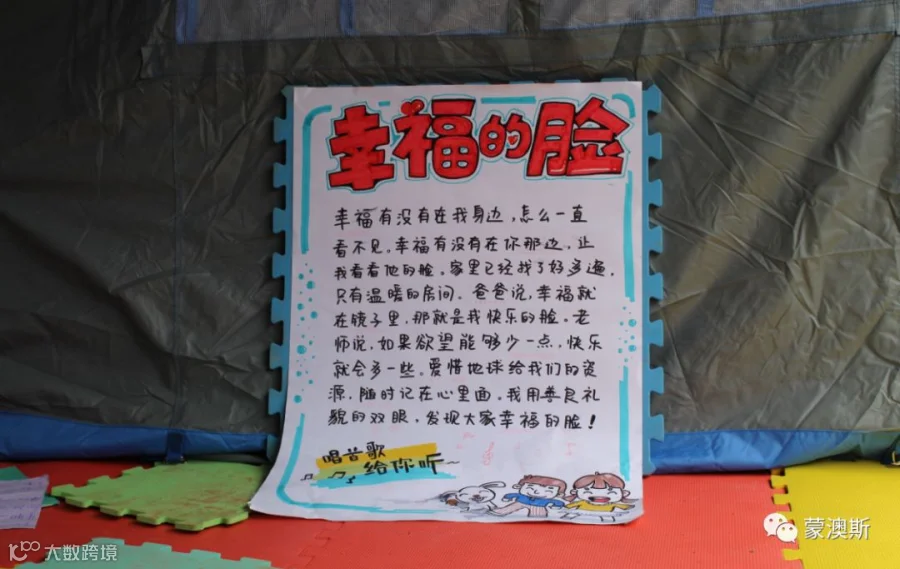 幸福的脸
幸福有没有在我身边，怎么一直
看不见。幸福有没有在你那边，让
我看看他的脸。家里已经找了好多遍，
只有温暖的房间。爸爸说，幸福就
在镜子里，那就是我快乐的脸。老
师说，如果欲望能够少一点，快乐
就会多一些。爱惜地球给我们的资
源，随时记在心里面。我用善良礼
貌的双眼，发现大家幸福的脸！
唱首歌
给你听~
蒙澳斯
大数跨境